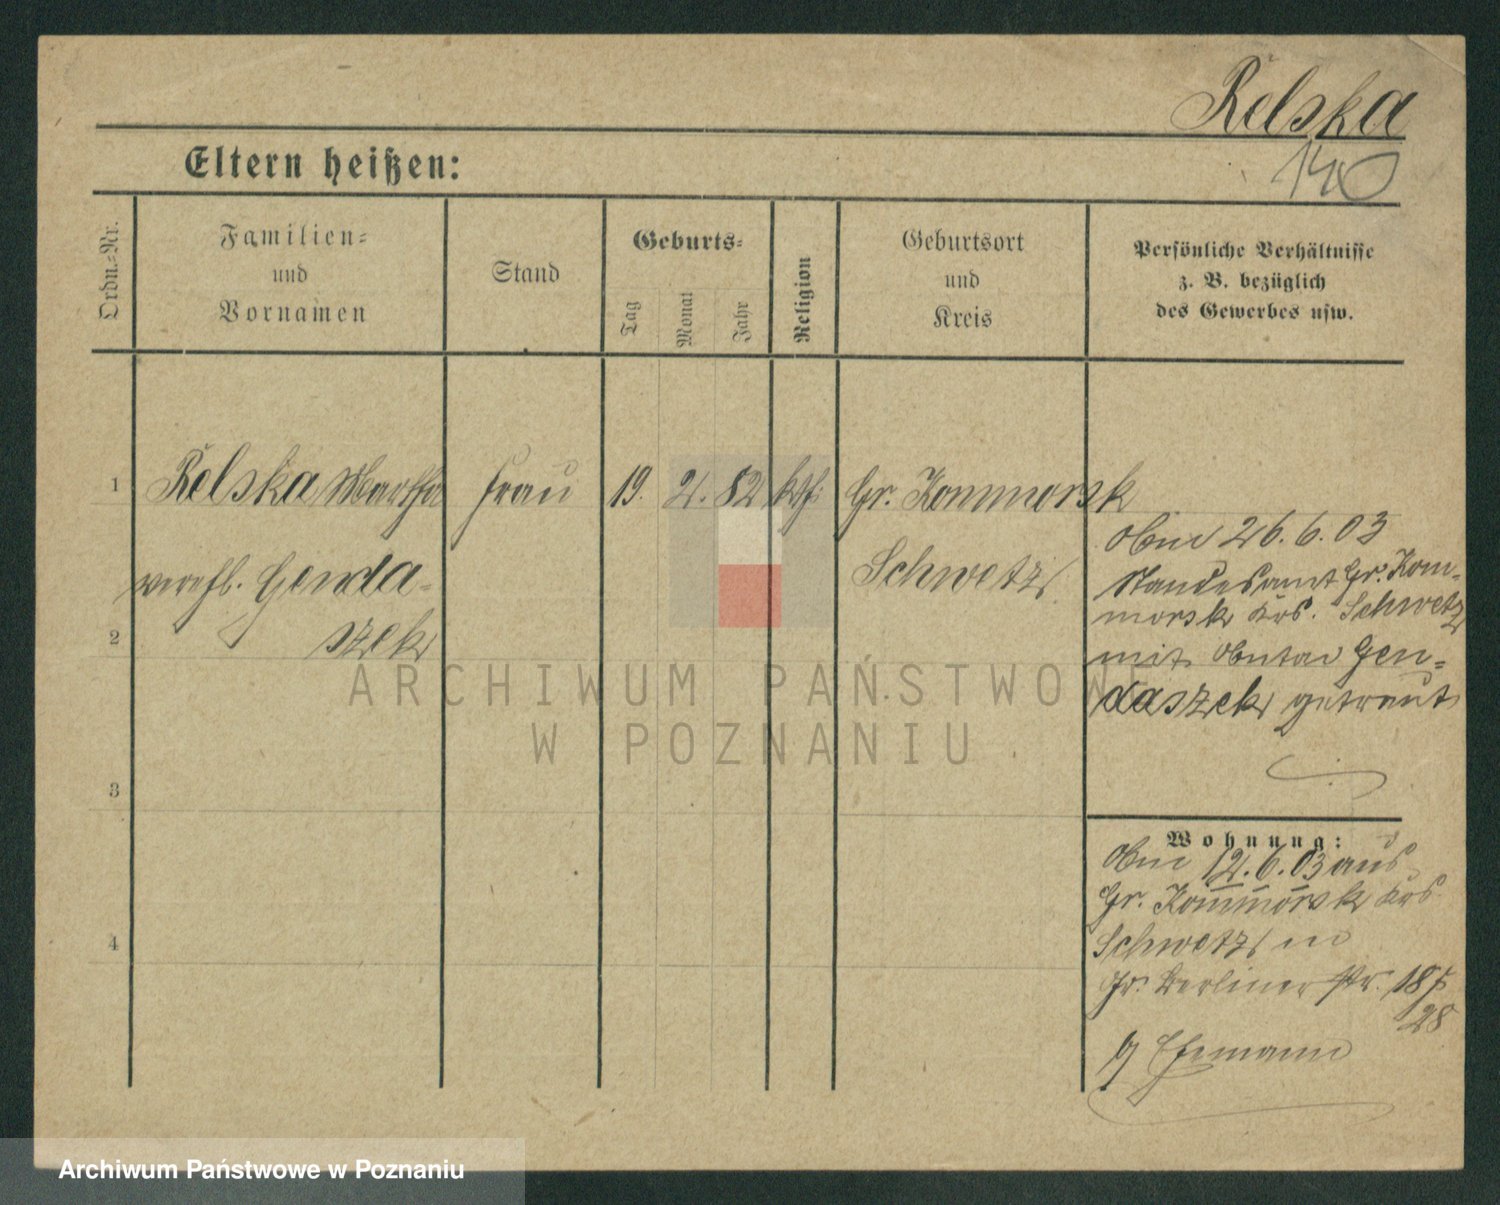 Relska
140
Eltern heißen:
Ordn.-Nr.
Familien-
und
Vornamen
Stand
Geburts-
Tag
Monat
Jahr
Religion
Geburtsort
und
Kreis
Persönliche Verhältnisse
z. B. bezüglich
des Gewerbes usw.
1
Relska Martha
Frau
19. 2. 82
kth.
Gr. Kommorsk
verehl. Genda-
szek
Schwetz
2
3
4
26. 6. 03
Standesamt Gr. Kom-
morsk Krs. Schwetz
mit Gen-
daszek getraut
Wohnung:
12. 6. 03 aus
Gr. Kommorsk Krs
Schwetz in
Gr. Berliner Str. 18
28
Ehemann
ARCHIWUM PAŃSTWOWE
W POZNANIU
Archiwum Państwowe w Poznaniu